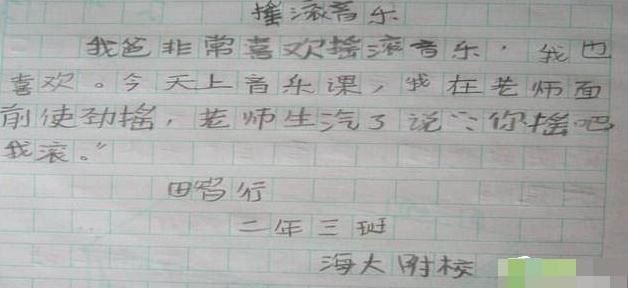 摇滚音乐
我爸非常喜欢摇滚音乐，我也
喜欢。今天上音乐课，我在老师面
前使劲摇，老师生汽了说：“你摇吧
我滚。”
田 行
二年三班
海大附校